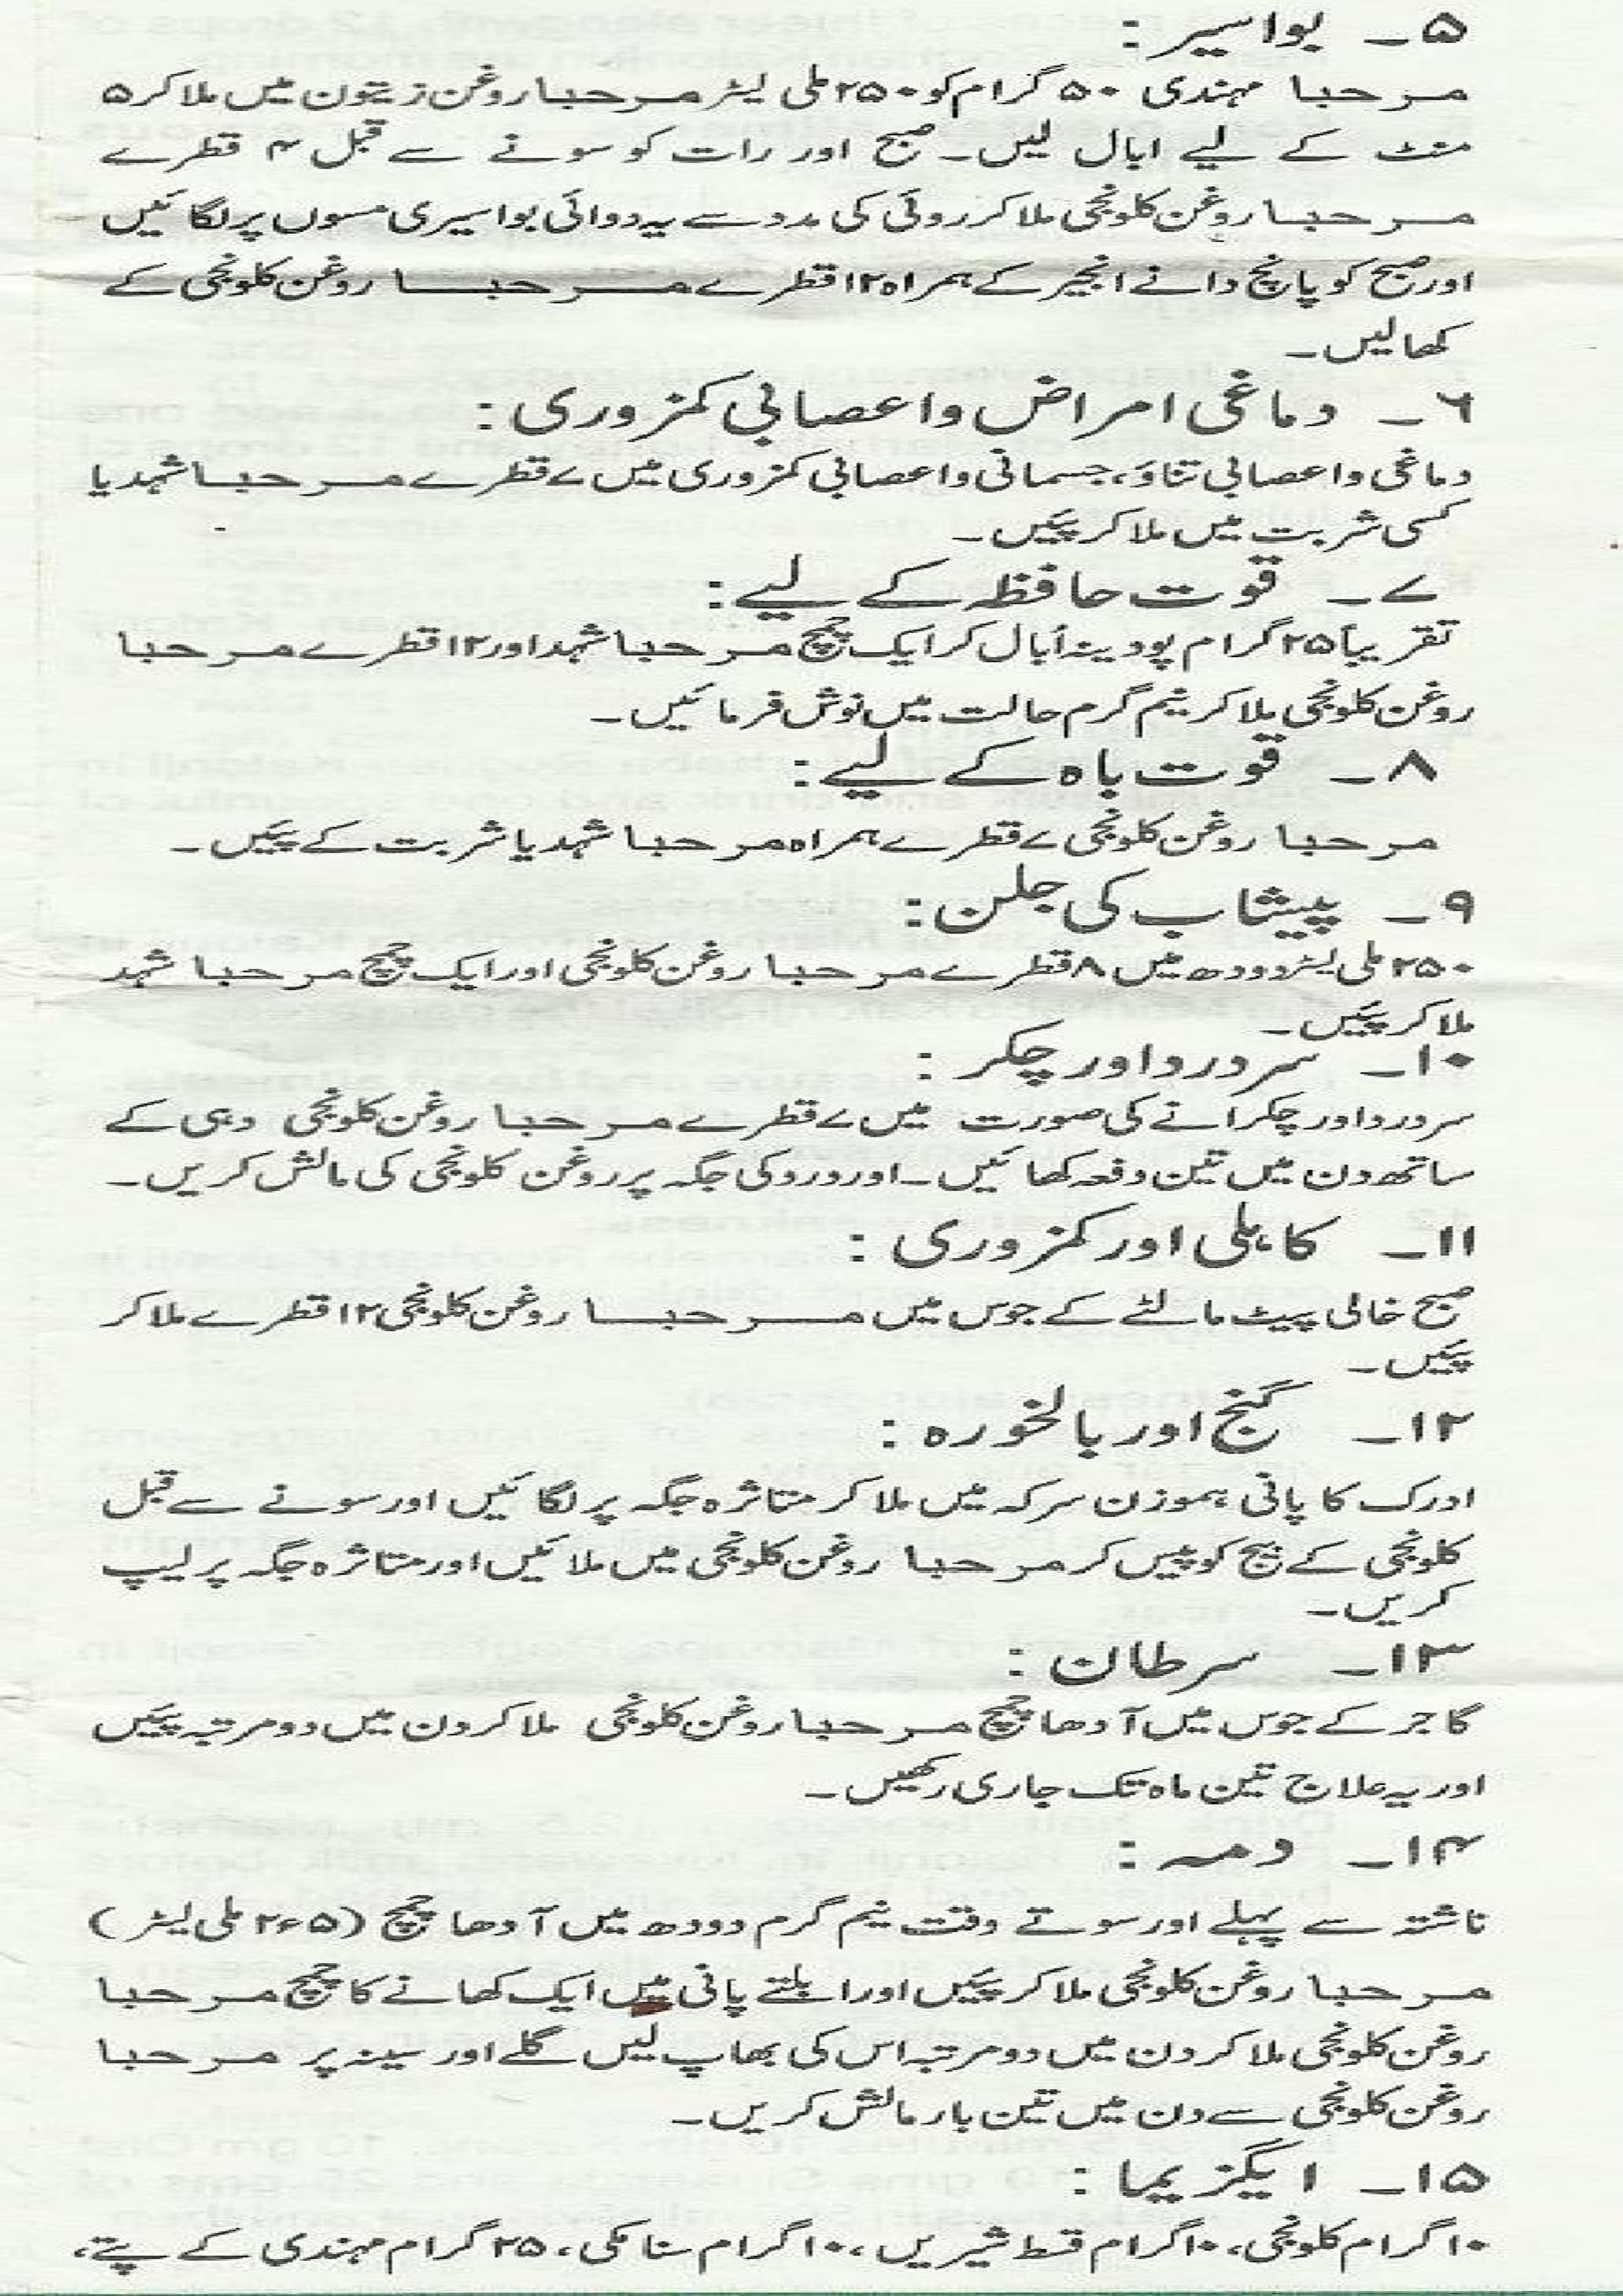 ۵۔ بواسیر:
مرحبا مہندی ۵۰ گرام کو ۲۵۰ ملی لیٹر مرحبا روغن زیتون میں ملا کر ۵
منٹ کے لیے ابال لیں۔ صبح اور رات کو سونے سے قبل ۴ قطرے
مرحبا روغن کلونجی ملا کر روئی کی مدد سے یہ دوائی بواسیری مسوں پر لگائیں
اور صبح کو پانچ دانے انجیر کے ہمراہ ۱۲ قطرے مرحبا روغن کلونجی کے
کھالیں۔
۶۔ دماغی امراض و اعصابی کمزوری:
دماغی و اعصابی تناؤ، جسمانی و اعصابی کمزوری میں ۷ قطرے مرحبا شہد یا
کسی شربت میں ملا کر پئیں۔
۷۔ قوت حافظہ کے لیے:
تقریباً ۲۵ گرام پودینہ اُبال کر ایک چمچ مرحبا شہد اور ۱۲ قطرے مرحبا
روغن کلونجی ملا کر نیم گرم حالت میں نوش فرمائیں۔
۸۔ قوت باہ کے لیے:
مرحبا روغن کلونجی ۷ قطرے ہمراہ مرحبا شہد یا شربت کے پئیں۔
۹۔ پیشاب کی جلن:
۲۵۰ ملی لیٹر دودھ میں ۸ قطرے مرحبا روغن کلونجی اور ایک چمچ مرحبا شہد
ملا کر پئیں۔
۱۰۔ سر درد اور چکر:
سر درد اور چکر انے کی صورت میں ۷ قطرے مرحبا روغن کلونجی دہی کے
ساتھ دن میں تین دفعہ کھائیں۔ اور درد کی جگہ پر روغن کلونجی کی مالش کریں۔
۱۱۔ کاہلی اور کمزوری:
صبح خالی پیٹ مالٹے کے جوس میں مرحبا روغن کلونجی ۱۲ قطرے ملا کر
پئیں۔
۱۲۔ گنج اور بالخورہ:
ادرک کا پانی ہموزن سرکہ میں ملا کر متاثرہ جگہ پر لگائیں اور سونے سے قبل
کلونجی کے بیج کو پیس کر مرحبا روغن کلونجی میں ملائیں اور متاثرہ جگہ پر لیپ
کریں۔
۱۳۔ سرطان:
گاجر کے جوس میں آدھا چمچ مرحبا روغن کلونجی ملا کر دن میں دو مرتبہ پئیں
اور یہ علاج تین ماہ تک جاری رکھیں۔
۱۴۔ دمہ:
ناشتہ سے پہلے اور سوتے وقت نیم گرم دودھ میں آدھا چمچ (۲ء۵ ملی لیٹر)
مرحبا روغن کلونجی ملا کر پئیں اور ابلتے پانی میں ایک کھانے کا چمچ مرحبا
روغن کلونجی ملا کر دن میں دو مرتبہ اس کی بھاپ لیں گلے اور سینہ پر مرحبا
روغن کلونجی سے دن میں تین بار مالش کریں۔
۱۵۔ ایگزیما:
۱۰ گرام کلونجی، ۱۰ گرام قسط شیریں، ۱۰ گرام سنا مکی، ۲۵ گرام مہندی کے پتے،